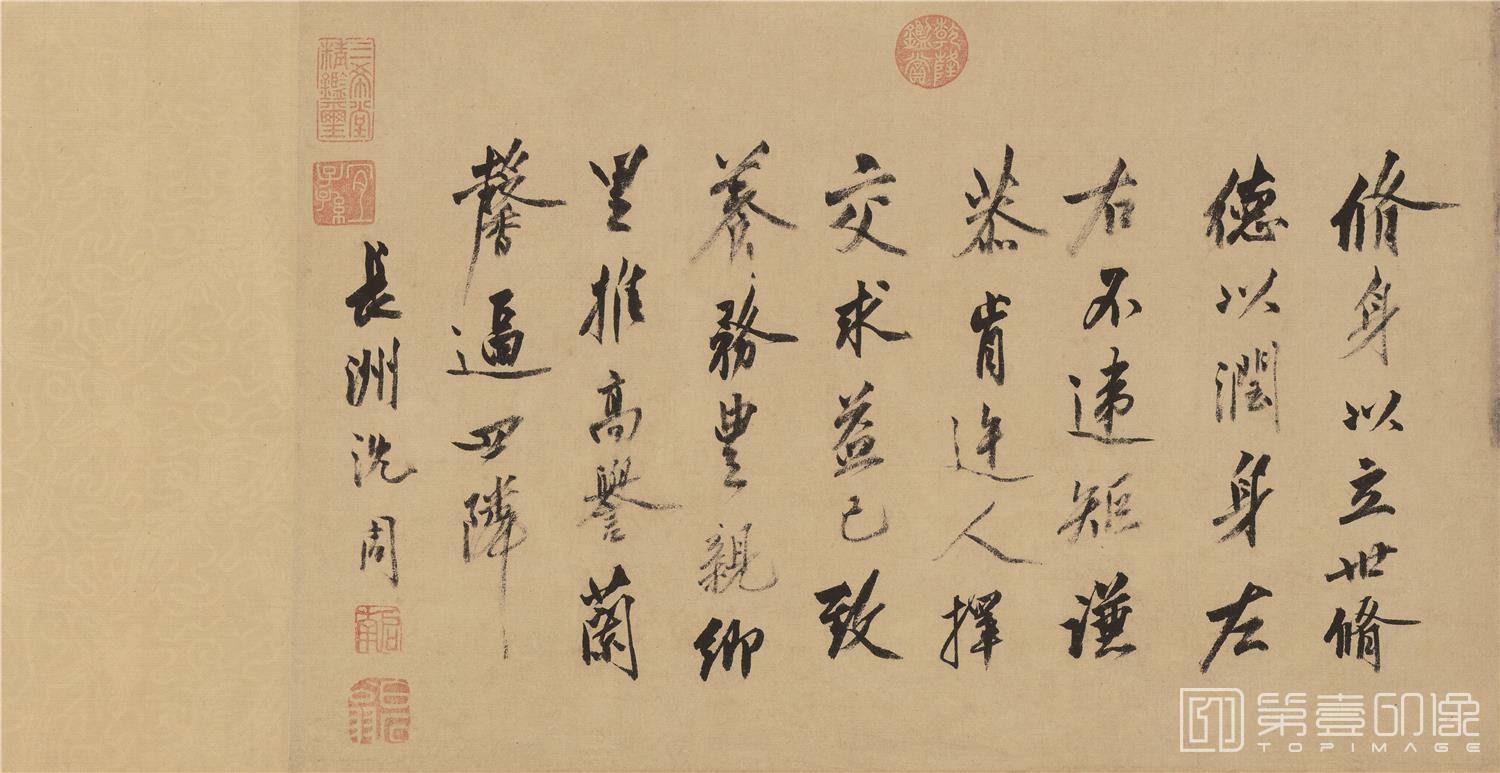 脩身以立世脩
德以潤身左
右不違矩謙
恭肯迕人擇
交求益已致
養務豊親鄉
里推高譽蘭
馨逼四隣
長洲沈周
乾隆鑑賞
三希堂精鑑璽
宜子孫
啟南
第壹印像
TOPIMAGE